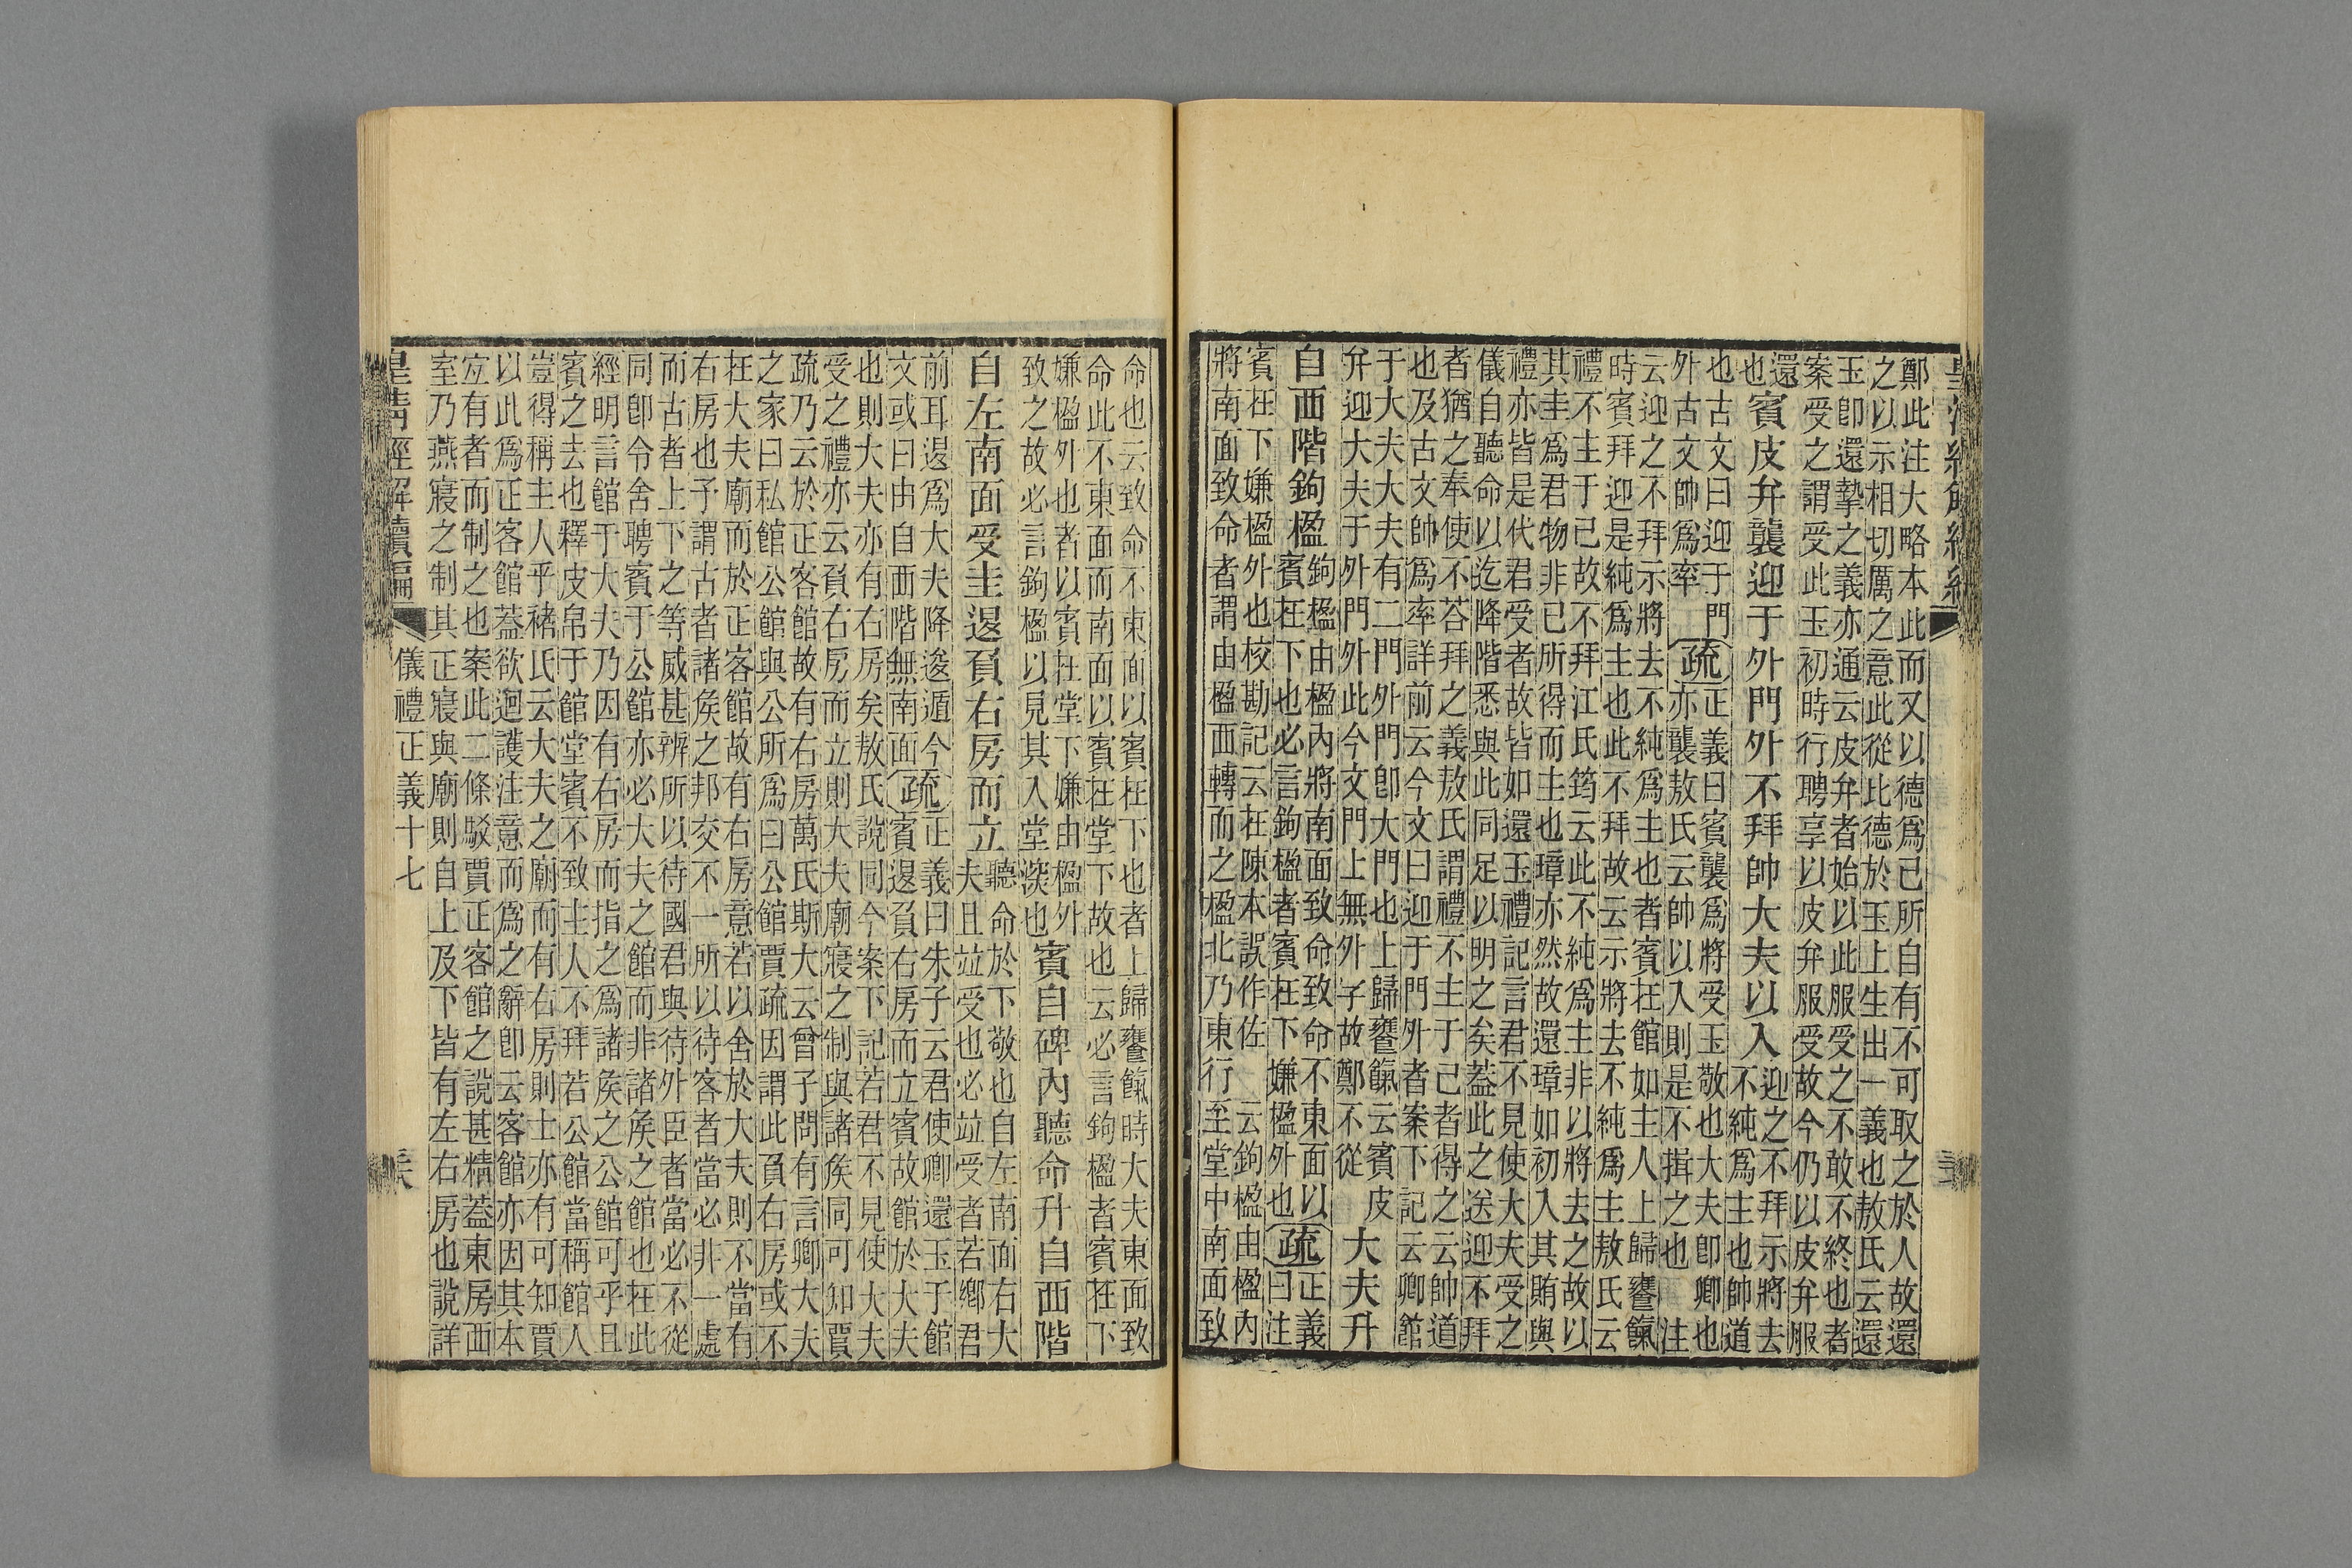 鄭此注大略本此而又以德為已所自有不可取之於人故還
之以示相切厲之意此從此德於玉上生出一義也敖氏云還
玉卽還摯之義亦通云皮弁者始以此服受之不敢不終也者
案受之謂受此玉初時行聘享以皮弁服受故今仍以皮弁服
還
也
賓皮弁襲迎于外門外不拜帥大夫以入
迎之不拜示將去
不純為主也帥道
也古文曰迎于門
外古文帥為率
疏
正義曰賓襲為將受玉敬也大夫卽卿也
亦襲敖氏云帥以入則是不揖之也 注
云迎之不拜示將去不純為主也者賓在館如主人上歸饔餼
時賓拜迎是純為主也此不拜故云示將去不純為主敖氏云
禮不主于已故不拜江氏筠云此不純為主非以將去之故以
其圭為君物非已所得而主也璋亦然故還璋如初入其賄與
禮亦皆是代君受者故皆如還玉禮記言君不見使大夫受之
儀自聽命以迄降階悉與此同足以明之矣蓋此之送迎不拜
者猶之奉使不荅拜之義敖氏謂禮不主于己者得之云帥道
也及古文帥為率詳前云今文曰迎于門外者案下記云卿館
于大夫大夫有二門外門卽大門也上歸饔餼云賓皮
弁迎大夫于外門外此今文門上無外字故鄭不從
大夫升
自西階鉤楹
鉤楹由楹內將南面致命致命不東面以
賓在下也必言鉤楹者賓在下嫌楹外也
疏
正義
曰注
賓在下嫌楹外也校勘記云在陳本誤作佐 云鉤楹由楹內
將南面致命者謂由楹西轉而之楹北乃東行至堂中南面致
命也云致命不東面以賓在下也者上歸饔餼時大夫東面致
命此不東面而南面以賓在堂下故也云必言鉤楹者賓在下
嫌楹外也者以賓在堂下嫌由楹外
致之故必言鉤楹以見其入堂深也
賓自碑內聽命升自西階
自左南面受圭退負右房而立
聽命於下敬也自左南面右大
夫且竝受也必竝受者若鄉君
前耳退為大夫降逡遁今
文或曰由自西階無南面
疏
正義曰朱子云君使卿還玉于館
賓退負右房而立賓故館於大夫
也則大夫亦有右房矣敖氏說同今案下記若君不見使大夫
受之禮亦云負右房而立則大夫廟寢之制與諸矦同可知賈
疏乃云於正客館故有右房萬氏斯大云曾子問有言卿大夫
之家曰私館公館與公所為曰公館賈疏因謂此負右房或不
在大夫廟而於正客館故有右房意若以舍於大夫則不當有
右房也予謂古者諸矦之邦交不一所以待客者當必非一處
而古者上下之等威甚辨所以待國君與待外臣者當必不從
同卽令舍聘賓于公館亦必大夫之館而非諸矦之館也在此
經明言館于大夫乃因有右房而指之為諸矦之公館可乎且
賓之去也釋皮帛于館堂賓不致主人不拜若公館當稱館人
豈得稱主人乎褚氏云大夫之廟而有右房則士亦有可知賈
以此為正客館蓋欲迴護注意而為之辭卽云客館亦因其本
宐有者而制之也案此二條駁賈正客館之說甚精蓋東房西
室乃燕寢之制其正寢與廟則自上及下皆有左右房也說詳
皇清經解續編
儀禮正義十七